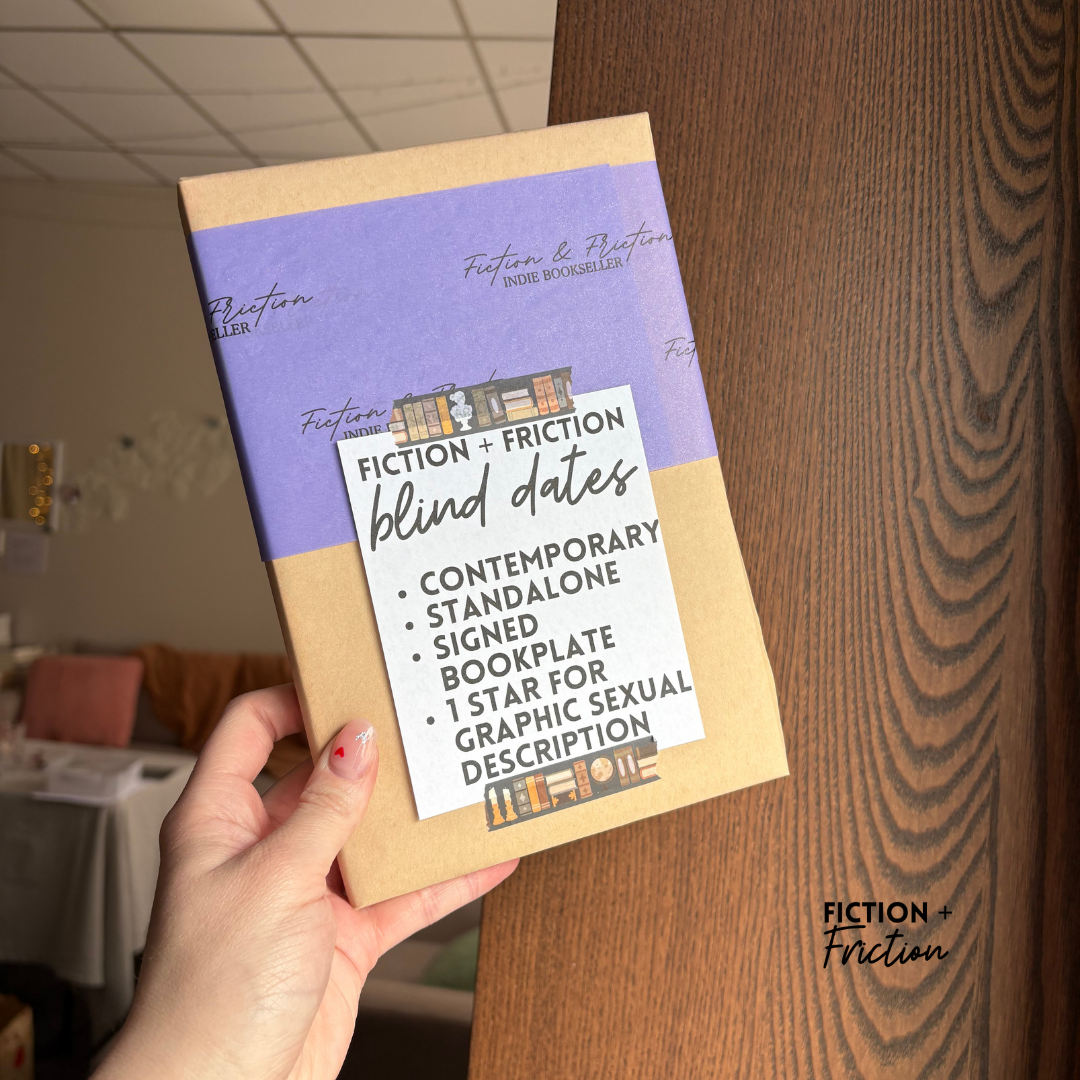 Fiction & Friction
INDIE BOOKSELLER
Friction
ELLER
Fict
Fiction &
INDIE
FICTION + FRICTION
blind dates
• CONTEMPORARY
• STANDALONE
• SIGNED
BOOKPLATE
• 1 STAR FOR
GRAPHIC SEXUAL
DESCRIPTION
FICTION +
Friction